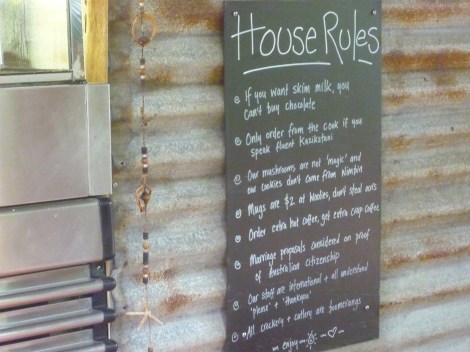 House Rules
If you want skim milk, you
can't buy chocolate
Only order from the cook if you
speak fluent Kazikstani
Our mushrooms are not 'magic' and
our cookies don't come from Nimbin
Mugs are $2 at Woolies, don't steal ours
Order extra hot coffee, get extra crap coffee
Marriage proposals considered on proof
of Australian citizenship
Our staff are international + all understand
'please' + 'thankyou'
All crockery + cutlery are boomerangs
enjoy